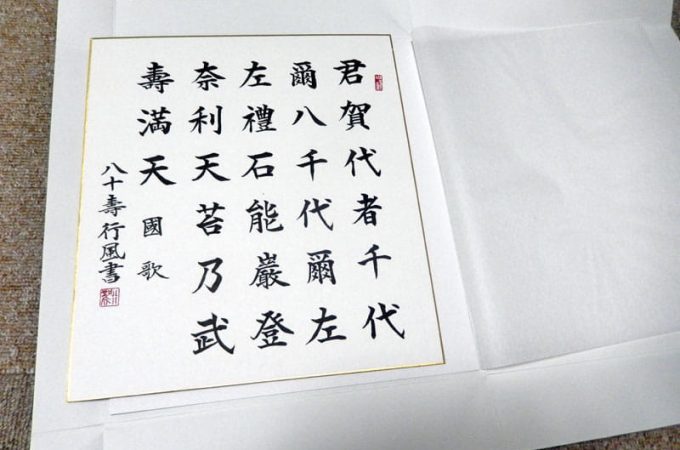 君賀代者千代
爾八千代爾左
左禮石能巖登
奈利天苔乃武
壽満天 國歌
八十壽行風書